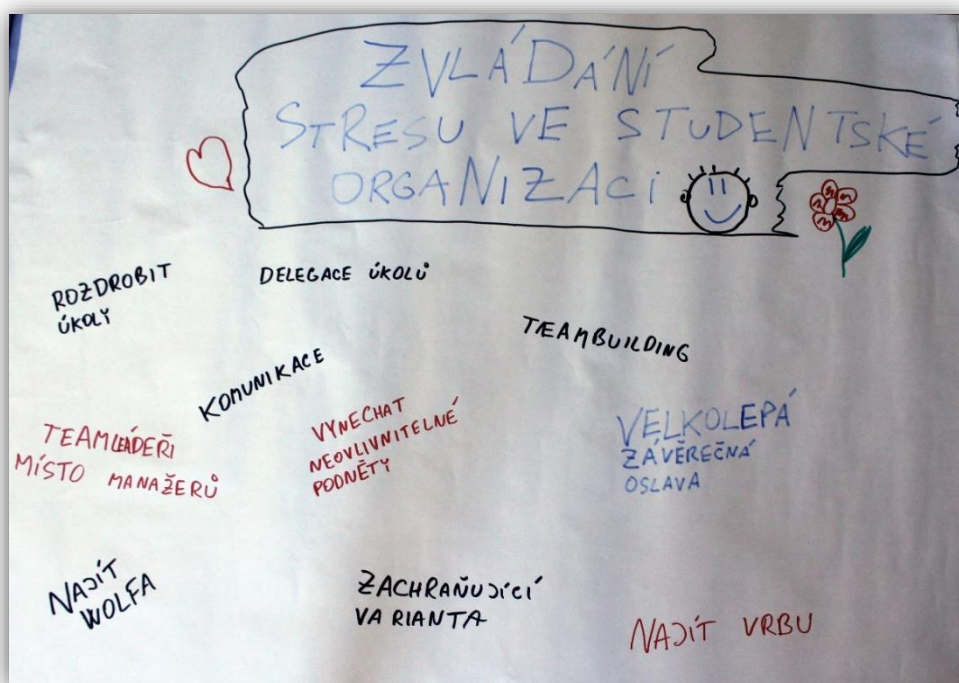 ZVLÁDÁNÍ
STRESU VE STUDENTSKÉ
ORGANIZACI
ROZDROBIT
ÚKOLY
DELEGACE ÚKOLŮ
TEAMBUILDING
KOMUNIKACE
TEAMLEADEŘI
MÍSTO MANAŽERŮ
VYNECHAT
NEOVLIVNITELNÉ
PODNĚTY
VELKOLEPÁ
ZÁVĚREČNÁ
OSLAVA
NAJÍT
WOLFA
ZACHRAŇUJÍCÍ
VARIANTA
NAJÍT VRBU